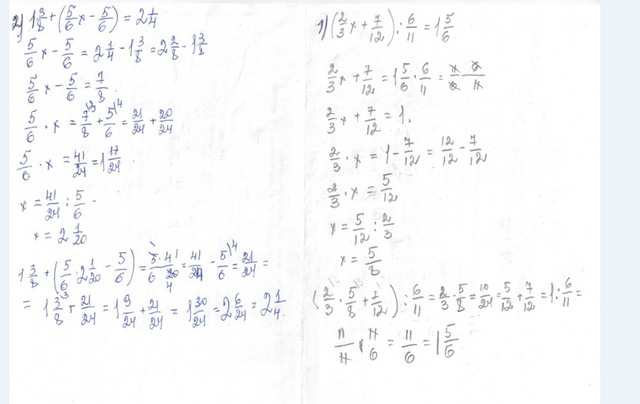 2) 1 3/8 + (5/6 x - 5/6) = 2 1/4
5/6 x - 5/6 = 2 1/4 - 1 3/8 = 2 2/8 - 1 3/8
5/6 x - 5/6 = 7/8
5/6 · x = 7/8 + 5/6 = 21/24 + 20/24
5/6 · x = 41/24 = 1 17/24.
x = 41/24 : 5/6.
x = 2 1/20
1 3/8 + (5/6 · 2 1/20 - 5/6) = 5·41/6 20 = 41/24 - 5/6 = 21/24 =
= 1 3/8 + 21/24 = 1 9/24 + 21/24 = 1 30/24 = 2 6/24 = 2 1/4.
1) (2/3 x + 7/12) : 6/11 = 1 5/6
2/3 x + 7/12 = 1 5/6 · 6/11 = 11/6 6/11
2/3 x + 7/12 = 1.
2/3 · x = 1 - 7/12 = 12/12 - 7/12
2/3 · x = 5/12
x = 5/12 : 2/3
x = 5/8
(2/3 · 5/8 + 7/12) : 6/11 = 2/3 · 5/8 = 10/24 = 5/12 + 7/12 = 1 : 6/11 =
11/11 · 11/6 = 11/6 = 1 5/6